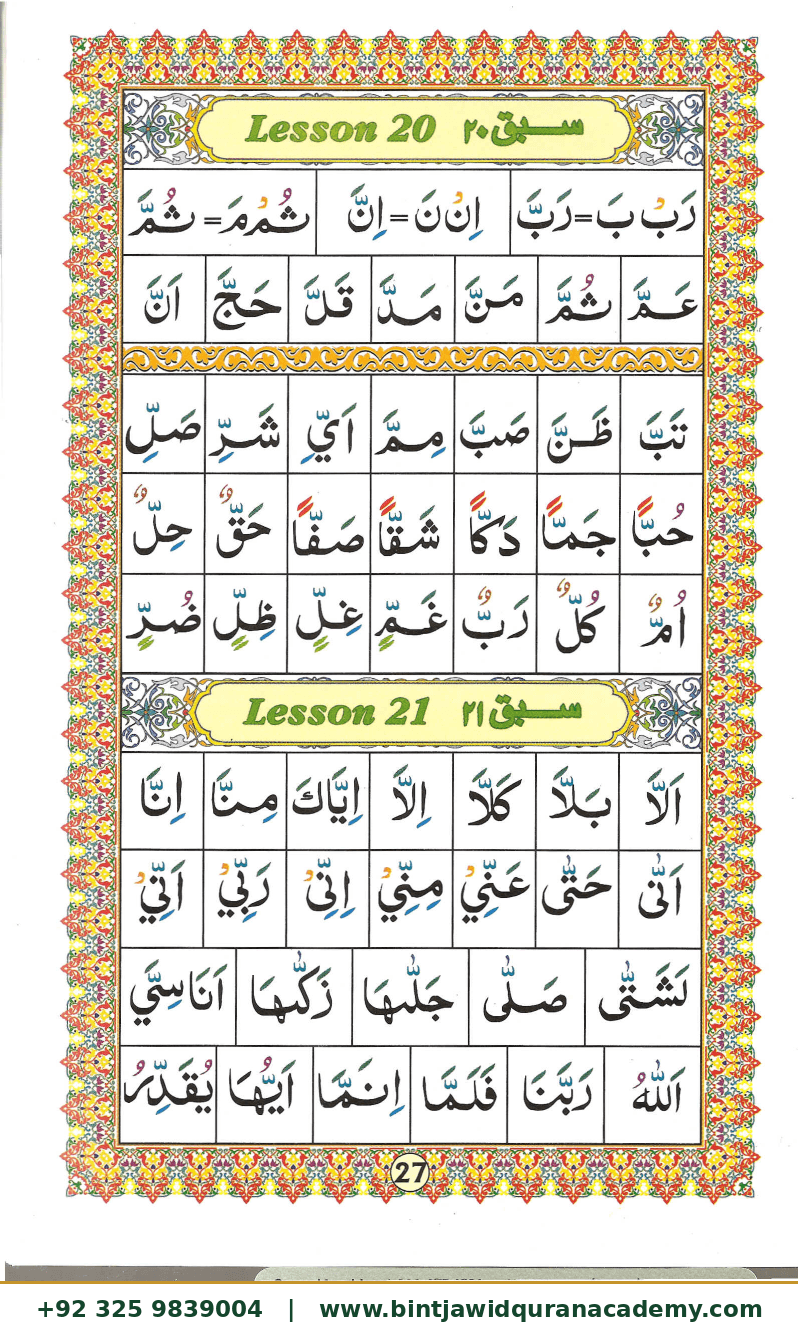 Lesson 20 سبق ۲۰
رَبْ بَ=رَبَّ اِنْ نَ=اِنَّ ثُمْ مَ=ثُمَّ
عَمَّ ثُمَّ مَنَّ مَدَّ قَلَّ حَجَّ اَنَّ
تَبَّ ظَنَّ صَبَّ مِمَّ اَيِّ شَرِّ صَلِّ
حُبًّا جَمًّا دَكًّا شَقًّا صَفًّا حَقٌّ حِلٌّ
اُمٌّ كُلٌّ رَبٌّ غَمٍّ غِلٍّ ظِلٍّ ضُرٍّ
Lesson 21 سبق ۲۱
اَلَّا بَلَّا كَلَّا اِلَّا اِيَّاكَ مِنَّا اِنَّا
اَنّٰى حَتّٰى عَنِّيْ مِنِّيْ اِنِّىْ رَبِّيْ اَنِّيْ
لَشَتّٰى صَلّٰى جَلّٰىهَا زَكّٰىهَا اَنَاسِيَّ
اَللّٰهُ رَبَّنَا فَلَمَّا اِنَمَّا اَيُّهَا يُقَدِّرُ
27
+92 325 9839004 | www.bintjawidquranacademy.com